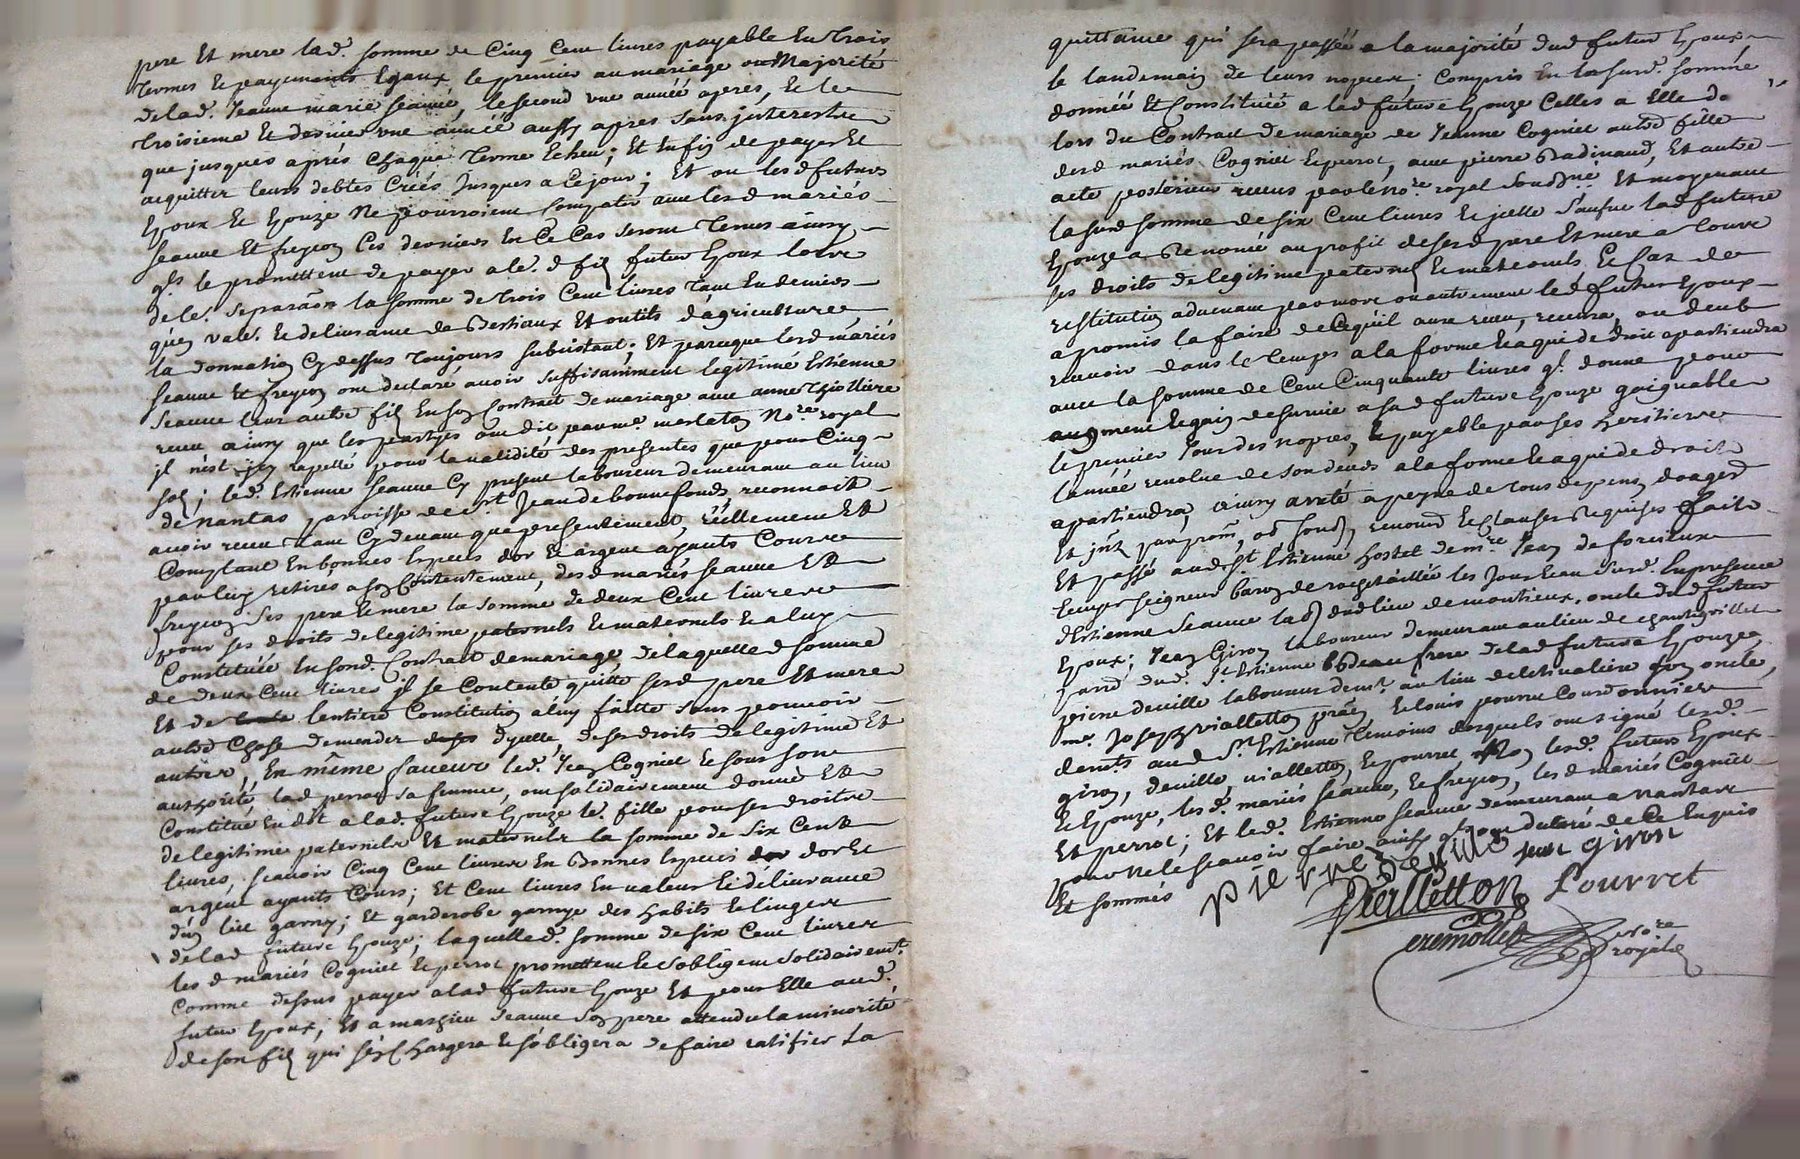 pere Et mere lad. somme de Cinq Cent livres payable En trois
termes Et payements Egaux le premier au mariage ou Majorité
de lad. Jeanne marie Seauve, le second une année apres, Et le
troisieme Et dernier une année aussy apres sans jnterests
que jusques aprés Chaque terme Echeu; Et Enfin de payer Et
acquitter leurs debtes Créés jusques a Ce jour; Et ou lesd futurs
Epoux Et Epouze Ne pourroient Compatir avec lesd mariés
Seauve Et freycon Ces derniers En Ce Cas seront tenus ainsy
qls le promettent de payer a led. fils futur Epoux lors
de le. separaõn la somme de trois Cent livres tant En deniers
qu'en vale. Et delivrance de Bestiaux Et outils d'agriculture
la donnation Cy dessus toujours subsistant; Et parceque lesd mariés
Seauve Et freycon ont declaré avoir suffisamment legitimé Estienne
Seauve leur autre fils En son Contrat de mariage avec anne Thiolliere
receu ainsy que les partyes ont dit par me. merlaton Nore royal
jl n'est jcy rapellé pour la validité des presentes que pour Cinq
sols; led. Estienne Seauve Cy present laboureur demeurant au lieu
de nantas parroisse de st Jean de bonnefonds, reconnoit
avoir receu tant Cy devant que presentement, reellement Et
Comptant En bonnes Especes d'or Et argent ayants Cours
par luy retirés a son Contentement, desd mariés Seauve Et
freycon ses pere Et mere la somme de deux Cent livres
pour ses droits de legitime paternels Et maternels Et a luy
Constituée En sond. Contrat de mariage, de laquelle somme
de deux Cent livres jl se Contente quitte sesd pere Et mere
Et de lentiere Constitution a luy faitte sans pouvoir
autre Chose demander d'yelle, de ses droits de legitime Et
autres, En même faveur led. Jean Cogniet Et sous son
authorité, lad perrot sa femme, ont solidairement donné Et
Constitué En dot a lad. future Epouze le. fille pour ses droits
de legitime paternels Et maternels la somme de six Cent
livres, scavoir Cinq Cent livres En Bonnes Especes d'or Et
argent ayants Cours; Et Cent livres En valeur Et délivrance
d'un lict garny; Et garderobe garnye des habits Et linges
de lad future Epouze; laquelle d. somme de six Cent livres
les d mariés Cogniet Et perrot promettent Et s'obligent solidairemt.
Comme dessus payer a lad future Epouze Et pour Elle aud.
futur Epoux; Et a mathieu Seauve son pere attendu la minorité
de son fils qui s'en Chargera Et s'obligera de faire ratifier La
quittance qui sera passée a la majorité dud futur Epoux
le landemain de leurs nopces. Compris En lasusd. somme
donnée Et Constituée a lad future Epouze Celles a Elle
lors du Contrat de mariage de Jeanne Cogniet autre fille
desd mariés Cogniet Et perrot, avec pierre Badinaud, Et autre
acte posterieur receus par le Nore royal soussné. Et moyenant
lasusd somme de six Cent livres Et jcelle sauſve lad future
Epouze a Renoncé au profit de sesd pere Et mere a tous
ses droits de legitime paternels Et maternels Et Cas de
restitution advenant par mort ou autrement led futur Epoux
a promis la faire de Ce qu'il aura receu, recevra, ou deub
recevoir dans le temps a la forme Et a qui de droit apartiendra
avec la somme de Cent Cinquante livres ql. donne pour
augment Et gain de survie a sad future Epouze gaignable
le premier jour des nopces, Et payable par ses heritiers
l'année revolue de son deceds a la forme Et a qui de droit
apartiendra, ainsy arreté a peyne de tous depens, domages
Et jnts par prom, ob, soub, renond Et Clauses Requises faite
Et passé aud st. Estienne hostel de mre. Jean de forcieux
Ecuyer seigneur baron de rochetaillée les jour Et an susd. En presence
d'Estienne Seauve labr dud lieu de montieux. oncle dud futur
Epoux; Jean Giron laboureur demeurant au lieu de chantegrillet
parr. dud. st Estienne beau frere de lad future Epouze,
pierre deville laboureur demt. au lieu de lestivaliere son oncle,
me. Joseph vialletton prãen Et louis pourret Cordonnier
demts. aud st. Estienne temoins desquels ont signé lesd.
giron, deville, vialletton, Et pourret, non lesd. futurs Epoux
Et Epouze, lesd. mariés Seauve, Et freycon, les d mariés Cogniet
Et perrot; Et led. Estienne Seauve demeurant a nantas
pour ne le scavoir faire ainsy qls ont declaré de Ce Enquis
Et sommés
pierre deville jean Giron
Vialletton Pourret
cremollet nore
royal